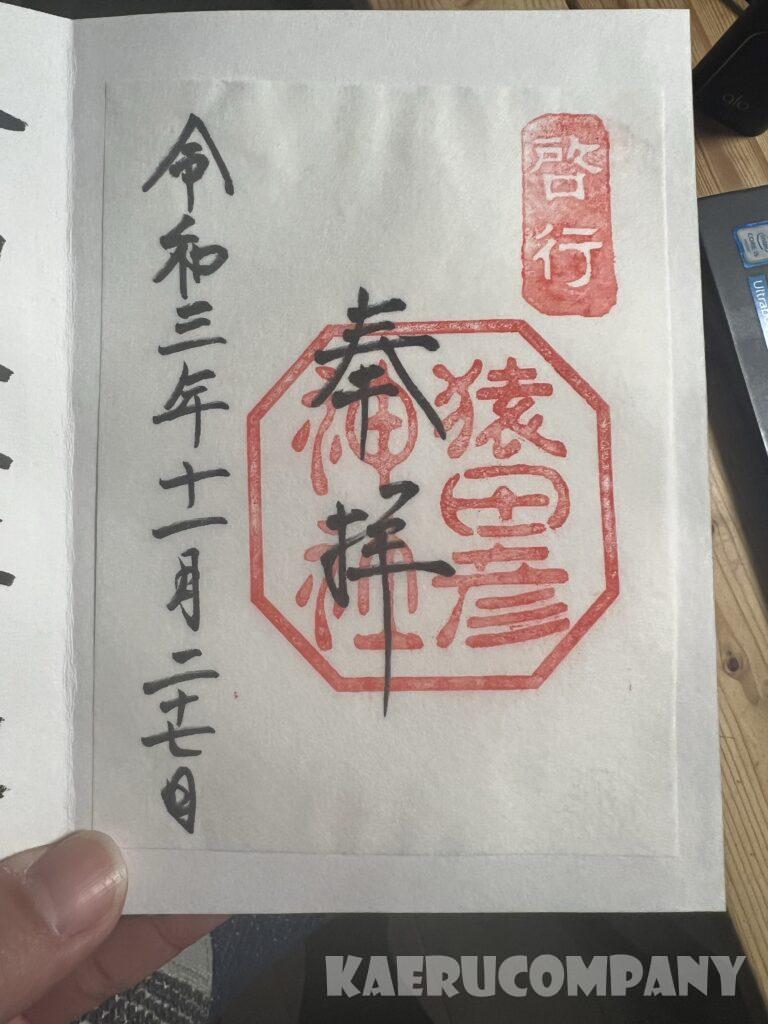 啓行
猿田彦
神社
奉拝
令和三年十一月二十七日
glo
intel
CORE i5
Ultrab
KAERUCOMPANY